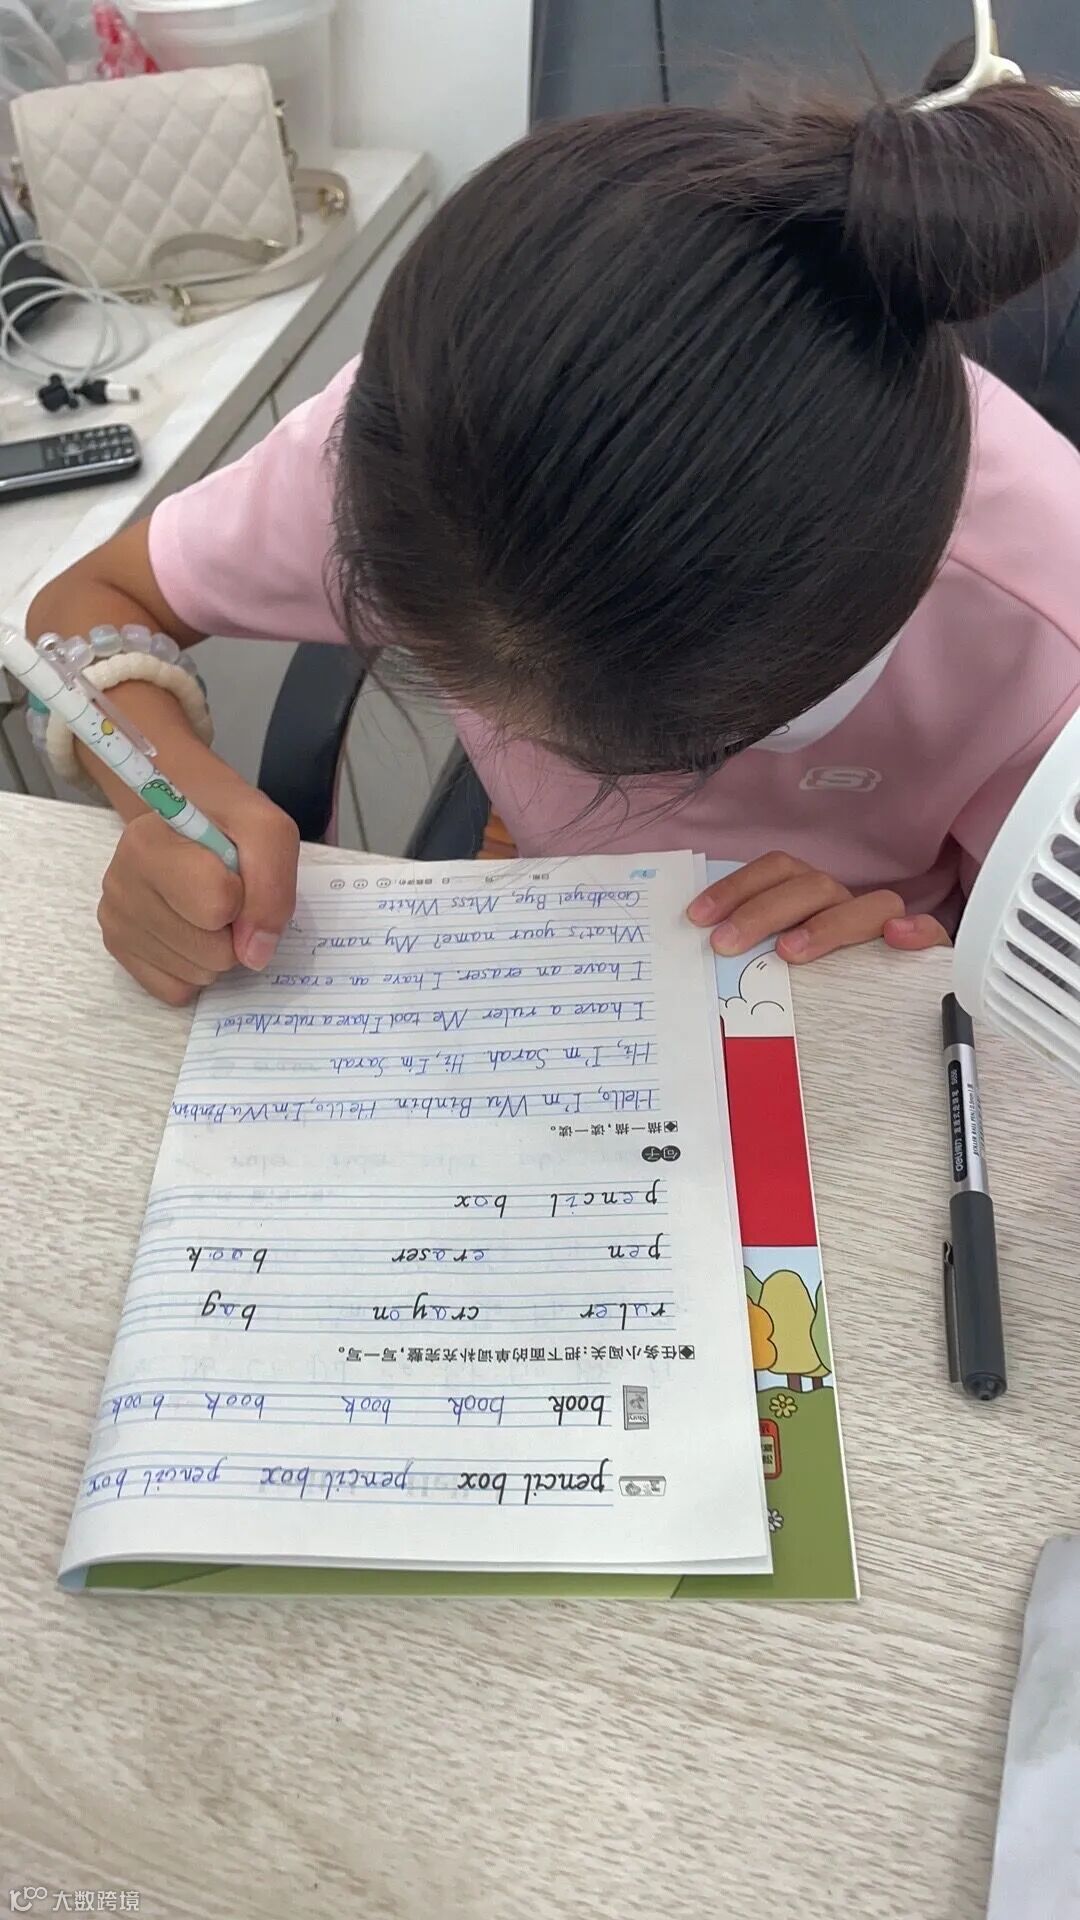 pencil box pencil box pencil box pencil box
book book book book book
◆任务小闯关:把下面的单词补充完整,写一写。
ruler crayon bag
pen eraser book
pencil box
句子
◆描一描,读一读。
Hello, I'm Wu Binbin. Hello, I'm Wu Binbin.
Hi, I'm Sarah. Hi, I'm Sarah
I have a ruler Me too! I have a ruler Me too!
I have an eraser. I have an eraser.
What's your name? My name
Goodbye! Bye, Miss White
deli得力
大数跨境